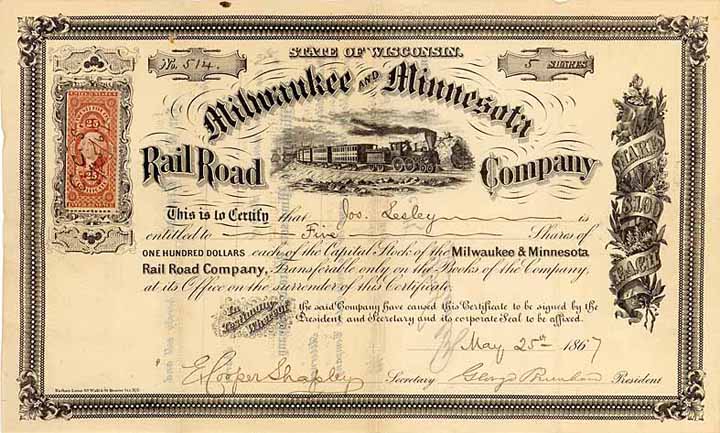 STATE OF WISCONSIN.
No. 514.
5 SHARES
Milwaukee AND Minnesota
Rail Road Company
25
25
SHARES
$100
EACH
This is to Certify that Jos. Lesley is
entitled to Five Shares of
ONE HUNDRED DOLLARS each of the Capital Stock of the Milwaukee & Minnesota
Rail Road Company, Transferable only on the Books of the Company,
at its Office on the surrender of this Certificate.
In Testimony Whereof the said Company have caused this Certificate to be signed by the
President and Secretary and its corporate Seal to be affixed.
May 25th 1867
E. Cooper Shapley Secretary President